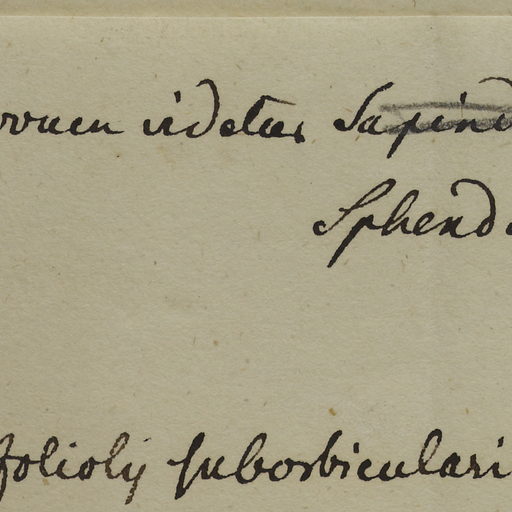 videtur Sapind
Sphend
foliolis suborbiculari